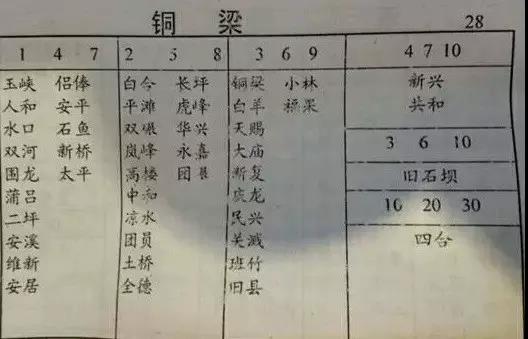 铜 梁 28
1 4 7
玉峡 侣俸
人和 安平
水口 石鱼
双河 新桥
围龙 太平
蒲吕
二坪
安溪
维新
安居
2 5 8
白今 长坪
平滩 虎峰
双碾 华兴
岚峰 永嘉
高楼
中和
凉水
团员
土桥
全德
3 6 9
铜梁 小林
白羊
天赐
大庙
新复
庆龙
民兴
关溅
班竹
旧县
4 7 10
新兴
共和
3 6 10
旧石坝
10 20 30
四合